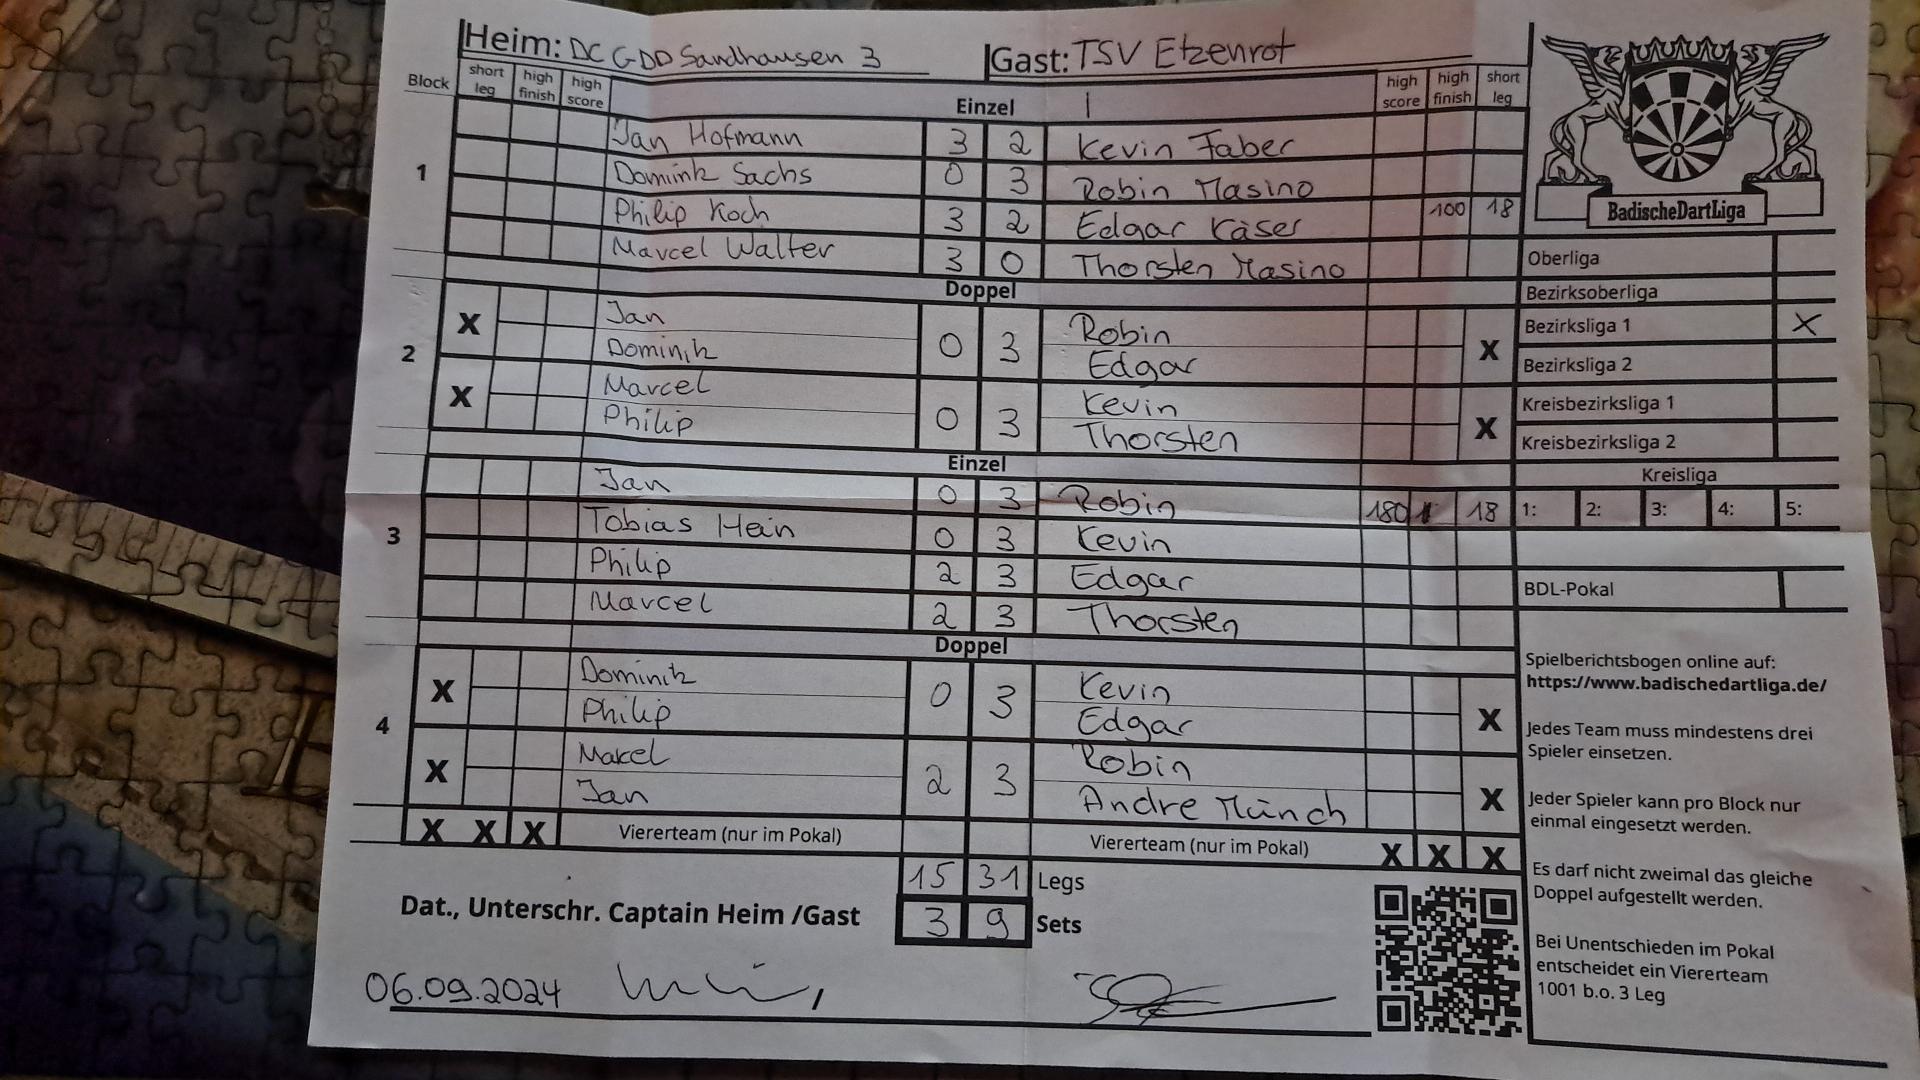 Heim: DC GDD Sandhausen 3 Gast: TSV Etzenrot
Block short leg high finish high score Einzel high score high finish short leg
1
Jan Hofmann 3 2 Kevin Faber
Dominik Sachs 0 3 Robin Masino
Philip Koch 3 2 Edgar Käser 100 18
Marcel Walter 3 0 Thorsten Masino
Doppel
2
X Jan 0 3 Robin X
Dominik Edgar
X Marcel 0 3 Kevin X
Philip Thorsten
Einzel
3
Jan 0 3 Robin 180 18
Tobias Hein 0 3 Kevin
Philip 2 3 Edgar
Marcel 2 3 Thorsten
Doppel
4
X Dominik 0 3 Kevin X
Philip Edgar
X Makel 2 3 Robin X
Jan Andre Münch
X X X Viererteam (nur im Pokal) Viererteam (nur im Pokal) X X X
15 31 Legs
Dat., Unterschr. Captain Heim /Gast 3 9 Sets
06.09.2024
BadischeDartLiga
Oberliga
Bezirksoberliga
Bezirksliga 1 X
Bezirksliga 2
Kreisbezirksliga 1
Kreisbezirksliga 2
Kreisliga
1: 2: 3: 4: 5:
BDL-Pokal
Spielberichtsbogen online auf:
https://www.badischedartliga.de/
Jedes Team muss mindestens drei
Spieler einsetzen.
Jeder Spieler kann pro Block nur
einmal eingesetzt werden.
Es darf nicht zweimal das gleiche
Doppel aufgestellt werden.
Bei Unentschieden im Pokal
entscheidet ein Viererteam
1001 b.o. 3 Leg